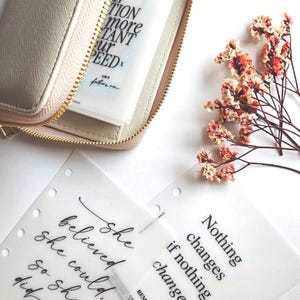 TION
more
TANT
your
EED.
she
believed
she could,
so she
did
Nothing
changes
if nothing
changes